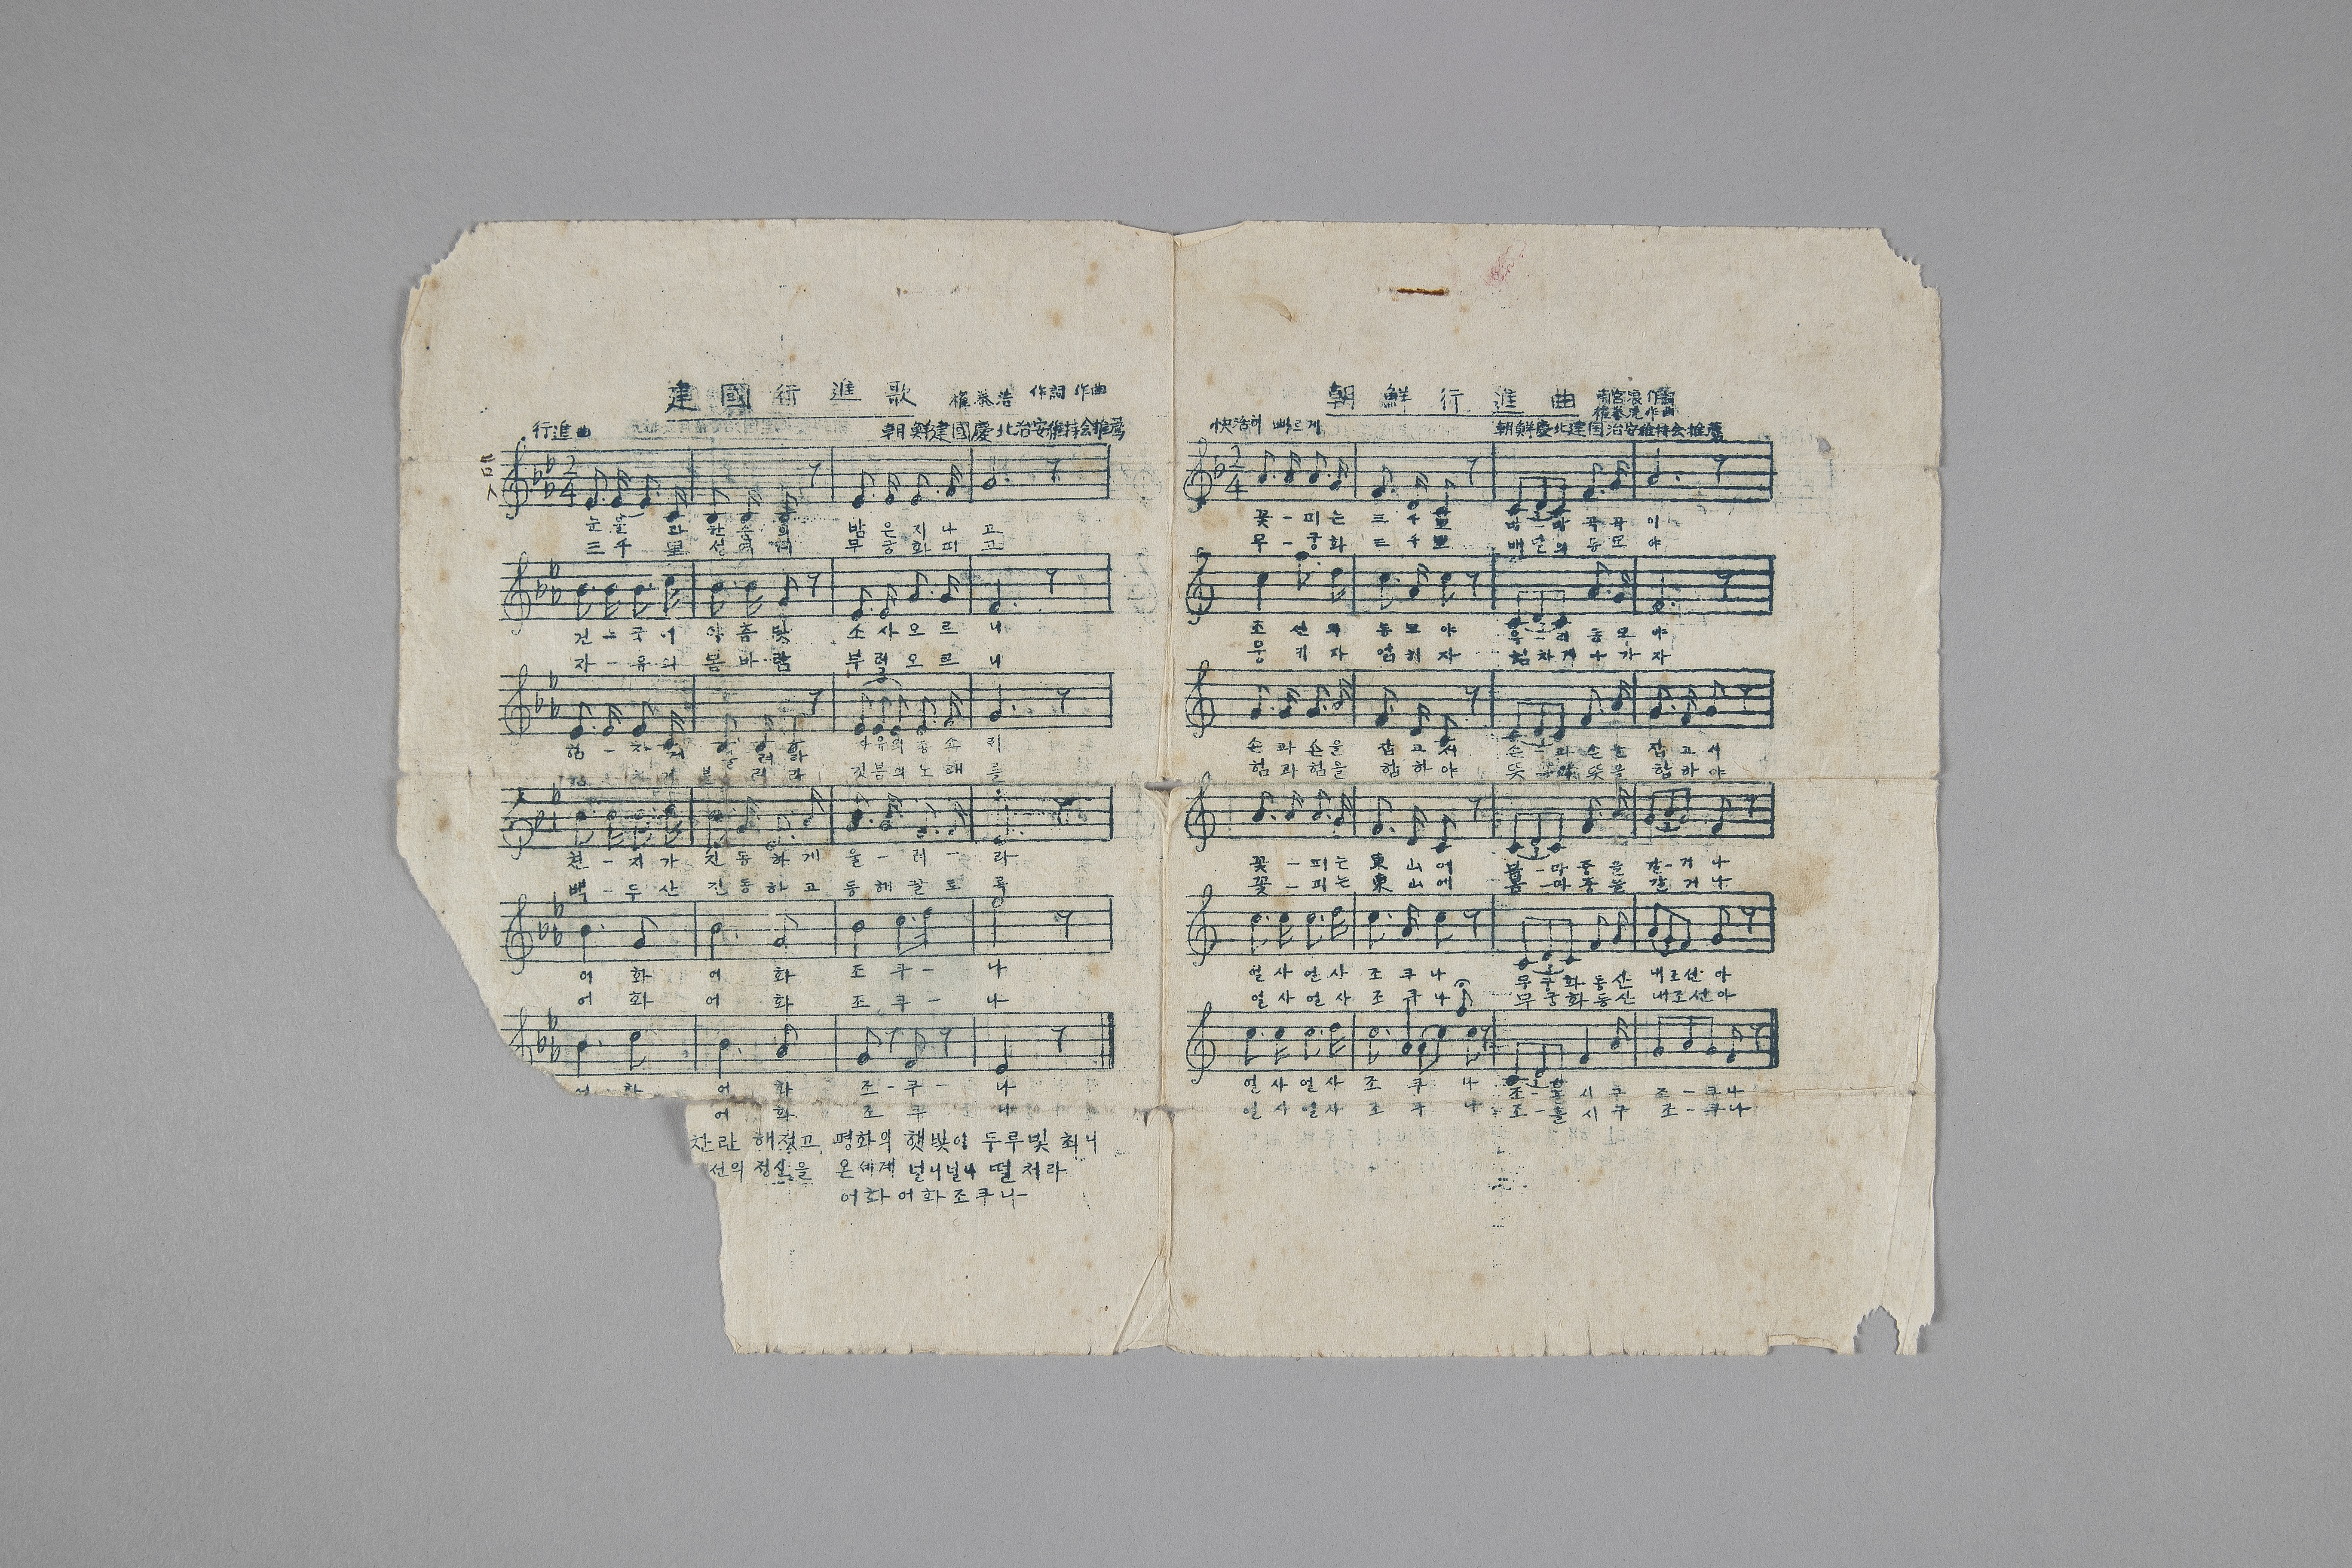 建國行進歌
作詞 作曲
行進曲
朝鮮建國慶北治安維持会推薦
2
4
밤은지나고
三千里
무궁화피고
소사오르니
자-유의 봄바람 부러오르니
종소리
깃븜의노래를
천-지가 진동하게 울-려-라
백-두산 진동하고 동해끌토록
어화 어화 조쿠-나
어화 어화 조쿠-나
어화 조-쿠-나
어화 조쿠나
찬란해젓고 평화의햇빛이 두루빛최니
선의정신을 온세게널니널니떨처라
어화어화조쿠나
朝鮮行進曲
作曲
快活히 빠르게
朝鮮慶北建国治安維持会推薦
2
4
꽃-피는 三千里 방-방곡곡이
무-궁화 三千里 배달의동모야
조선의 동모야 우-리동모야
뭉키자 엄키자 힘차게나가자
손과손을 잡고서 손-과손을 잡고서
힘과힘을 합하야 뜻-과뜻을 합하야
꽃-피는 東山에 봄-마중을 갈-거나
꽃-피는 東山에 봄-마중을 갈거나
얼사얼사 조쿠나 무궁화동산 내조선아
얼사얼사 조쿠나 무궁화동산 내조선아
얼사얼사 조쿠나 조-흘시구 조-쿠나
얼사얼사 조쿠나 조-흘시구 조-쿠나